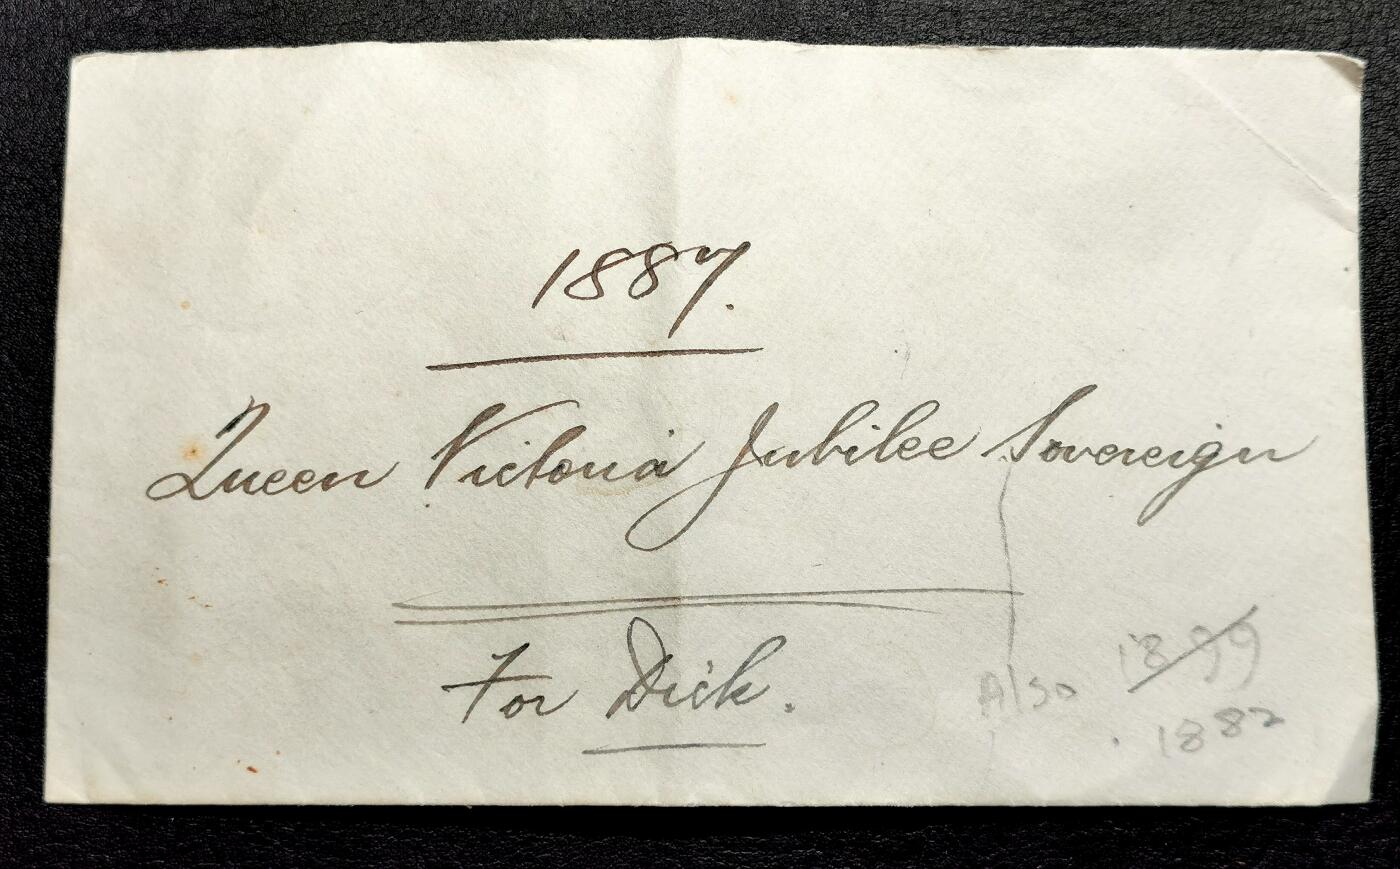 1887.
Queen Victoria Jubilee Sovereign
For Dick.
Also 1899
1882